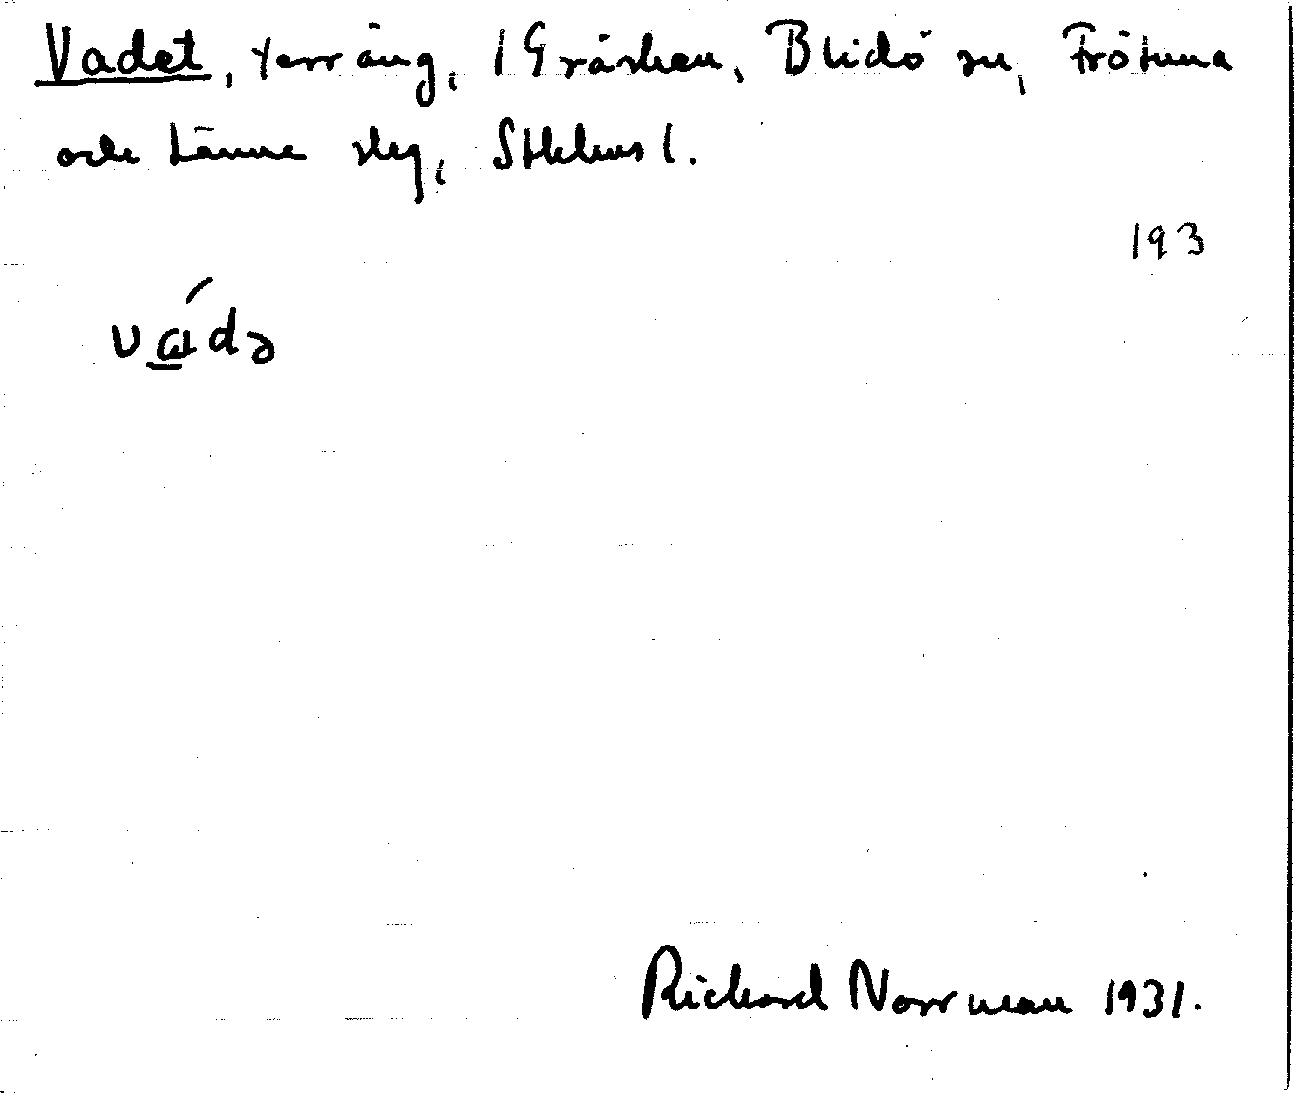 Vadet, terräng, 1 Gräskan, Blidö sn, Frötuna
och Länna skg, Sthlms l.
193
vá̱də
Rickard Norrman 1931.